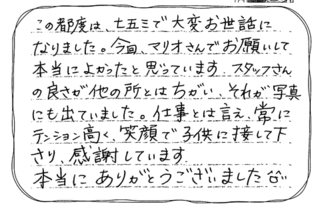 この都度は、七五三で大変お世話に
なりました。今回、マリオさんでお願いして
本当によかったと思っています。スタッフさん
の良さが他の所とはちがい、それが写真
にも出ていました。仕事とは言え、常に
テンション高く、笑顔で子供に接して下
さり、感謝しています。
本当にありがとうございました